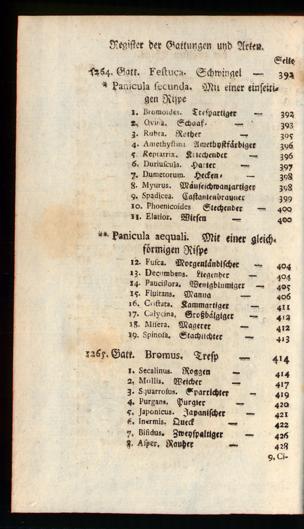 Register der Gattungen und Arten.
Seite
1264. Gatt. Festuca. Schwingel — 392
* Panicula secunda. Mit einer einseiti-
gen Rispe
1. Bromoides. Trespartiger — 392
2. Ovina. Schaaf- — 393
3. Rubra. Rother — 395
4. Amethystina Amethystfärbiger 396
5. Reptatrix. Kriechender — 396
6. Duriuscula. Harter — 397
7. Dumetorum. Hecken- — 398
8. Myurus. Mäuseschwanzartiger 398
9. Spadicea. Castanienbrauner 399
10. Phoenicoides Stechender — 400
11. Elatior. Wiesen — 400
** Panicula aequali. Mit einer gleich-
förmigen Rispe
12. Fusca. Morgenländischer — 404
13. Decumbens. Liegender — 404
14. Pauciflora. Wenigblumiger — 405
15. Fluitans. Manna — 406
16. Cristata. Kammartiger — 411
17. Calycina. Großbälgiger — 412
18. Misera. Magerer — 412
19. Spinosa. Stachlichter — 413
1265. Gatt. Bromus. Tresp — 414
1. Secalinus. Roggen — 414
2. Mollis. Weicher — 417
3. Squarrosus. Sparrichter — 419
4. Purgans. Purgier — 420
5. Japonicus. Japanischer — 421
6. Inermis. Queck — 422
7. Bifidus. Zweyspaltiger — 426
8. Asper. Rauher — 428
9. Ci-